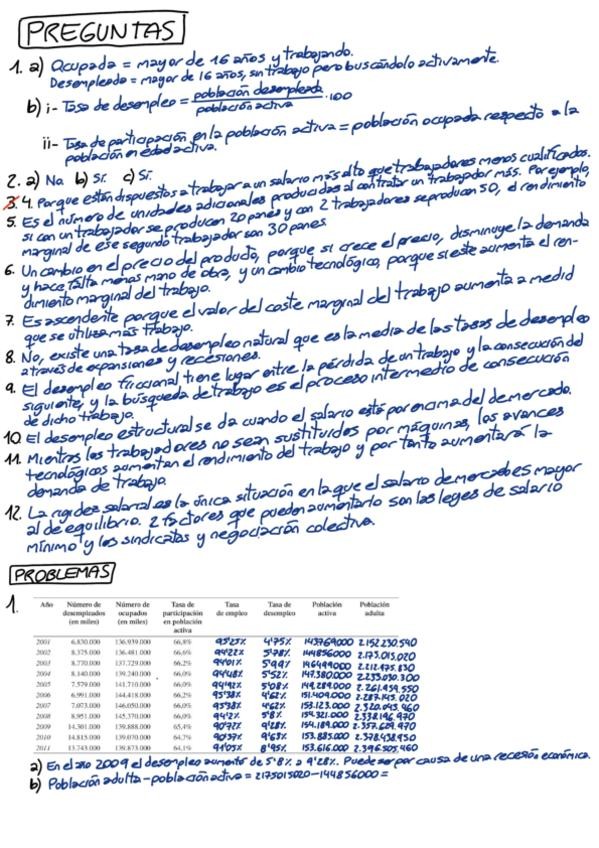 PREGUNTAS
1. a) Ocupada = mayor de 16 años y trabajando.
Desempleado = mayor de 16 años, sin trabajo pero buscándolo activamente.
b) i- Tasa de desempleo = población desempleada / población activa · 100
ii- Tasa de participación en la población activa = población ocupada respecto a la
población en edad activa.
2. a) No b) Sí. c) Sí.
3. 4. Porque están dispuestos a trabajar a un salario más alto que trabajadores menos cualificados.
5. Es el número de unidades adicionales producidas al contratar un trabajador más. Por ejemplo,
si con un trabajador se producen 20 panes y con 2 trabajadores se producen 50, el rendimiento
marginal de ese segundo trabajador son 30 panes
6. Un cambio en el precio del producto, porque si crece el precio, disminuye la demanda
y hace falta menos mano de obra, y un cambio tecnológico, porque si este aumenta el ren-
dimiento marginal del trabajo.
7. Es ascendente porque el valor del coste marginal del trabajo aumenta a medid
que se utiliza más trabajo.
8. No, existe una tasa de desempleo natural que es la media de las tasas de desempleo
a través de expansiones y recesiones.
9. El desempleo friccional tiene lugar entre la pérdida de un trabajo y la consecución del
siguiente, y la búsqueda de trabajo es el proceso intermedio de consecución
de dicho trabajo.
10. El desempleo estructural se da cuando el salario está por encima del de mercado.
11. Mientras los trabajadores no sean sustituidos por máquinas, los avances
tecnológicos aumentan el rendimiento del trabajo y por tanto aumentará la
demanda de trabajo.
12. La rigidez salarial es la única situación en la que el salario de mercado es mayor
al de equilibrio. 2 factores que pueden aumentarlo son las leyes de salario
mínimo y los sindicatos y negociación colectiva.
PROBLEMAS
1.
Año Número de desempleados (en miles) Número de ocupados (en miles) Tasa de participación en población activa Tasa de empleo Tasa de desempleo Población activa Población adulta
2001 6.830.000 136.939.000 66,8% 95'25% 4'75% 143769000 2.152.230.540
2002 8.375.000 136.481.000 66,6% 94'22% 5'78% 144856000 2.175.015.020
2003 8.770.000 137.729.000 66,2% 94'01% 5'99% 146499000 2.212.975.830
2004 8.140.000 139.240.000 66,0% 94'48% 5'52% 147.380.000 2.233.030.300
2005 7.579.000 141.710.000 66,0% 94'92% 5'08% 149.289.000 2.261.954.550
2006 6.991.000 144.418.000 66,2% 95'38% 4'62% 151.409.000 2.287.145.020
2007 7.073.000 146.050.000 66,0% 95'38% 4'62% 153.123.000 2.320.045.460
2008 8.951.000 145.370.000 66,0% 94'2% 5'8% 154.321.000 2.338.196.970
2009 14.301.000 139.888.000 65,4% 90'72% 9'28% 154.189.000 2.357.629.970
2010 14.815.000 139.070.000 64,7% 90'37% 9'63% 153.885.000 2.378.438.950
2011 13.743.000 139.873.000 64,1% 91'05% 8'95% 153.616.000 2.396.505.460
a) En el año 2009 el desempleo aumentó de 5'8% a 9'28%. Puede ser por causa de una recesión económica.
b) Población adulta - población activa = 2175015020 - 144856000 =